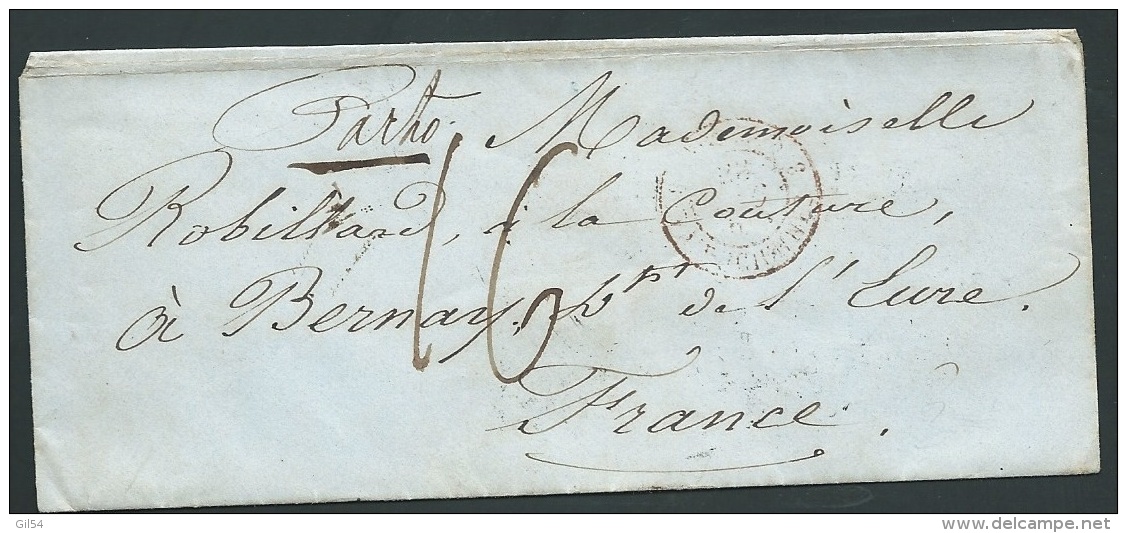 Parto. Mademoiselle
Robillard, à la Couture,
à Bernay, Dpt de l'Eure.
France.
16
Gil54
delcampe.net